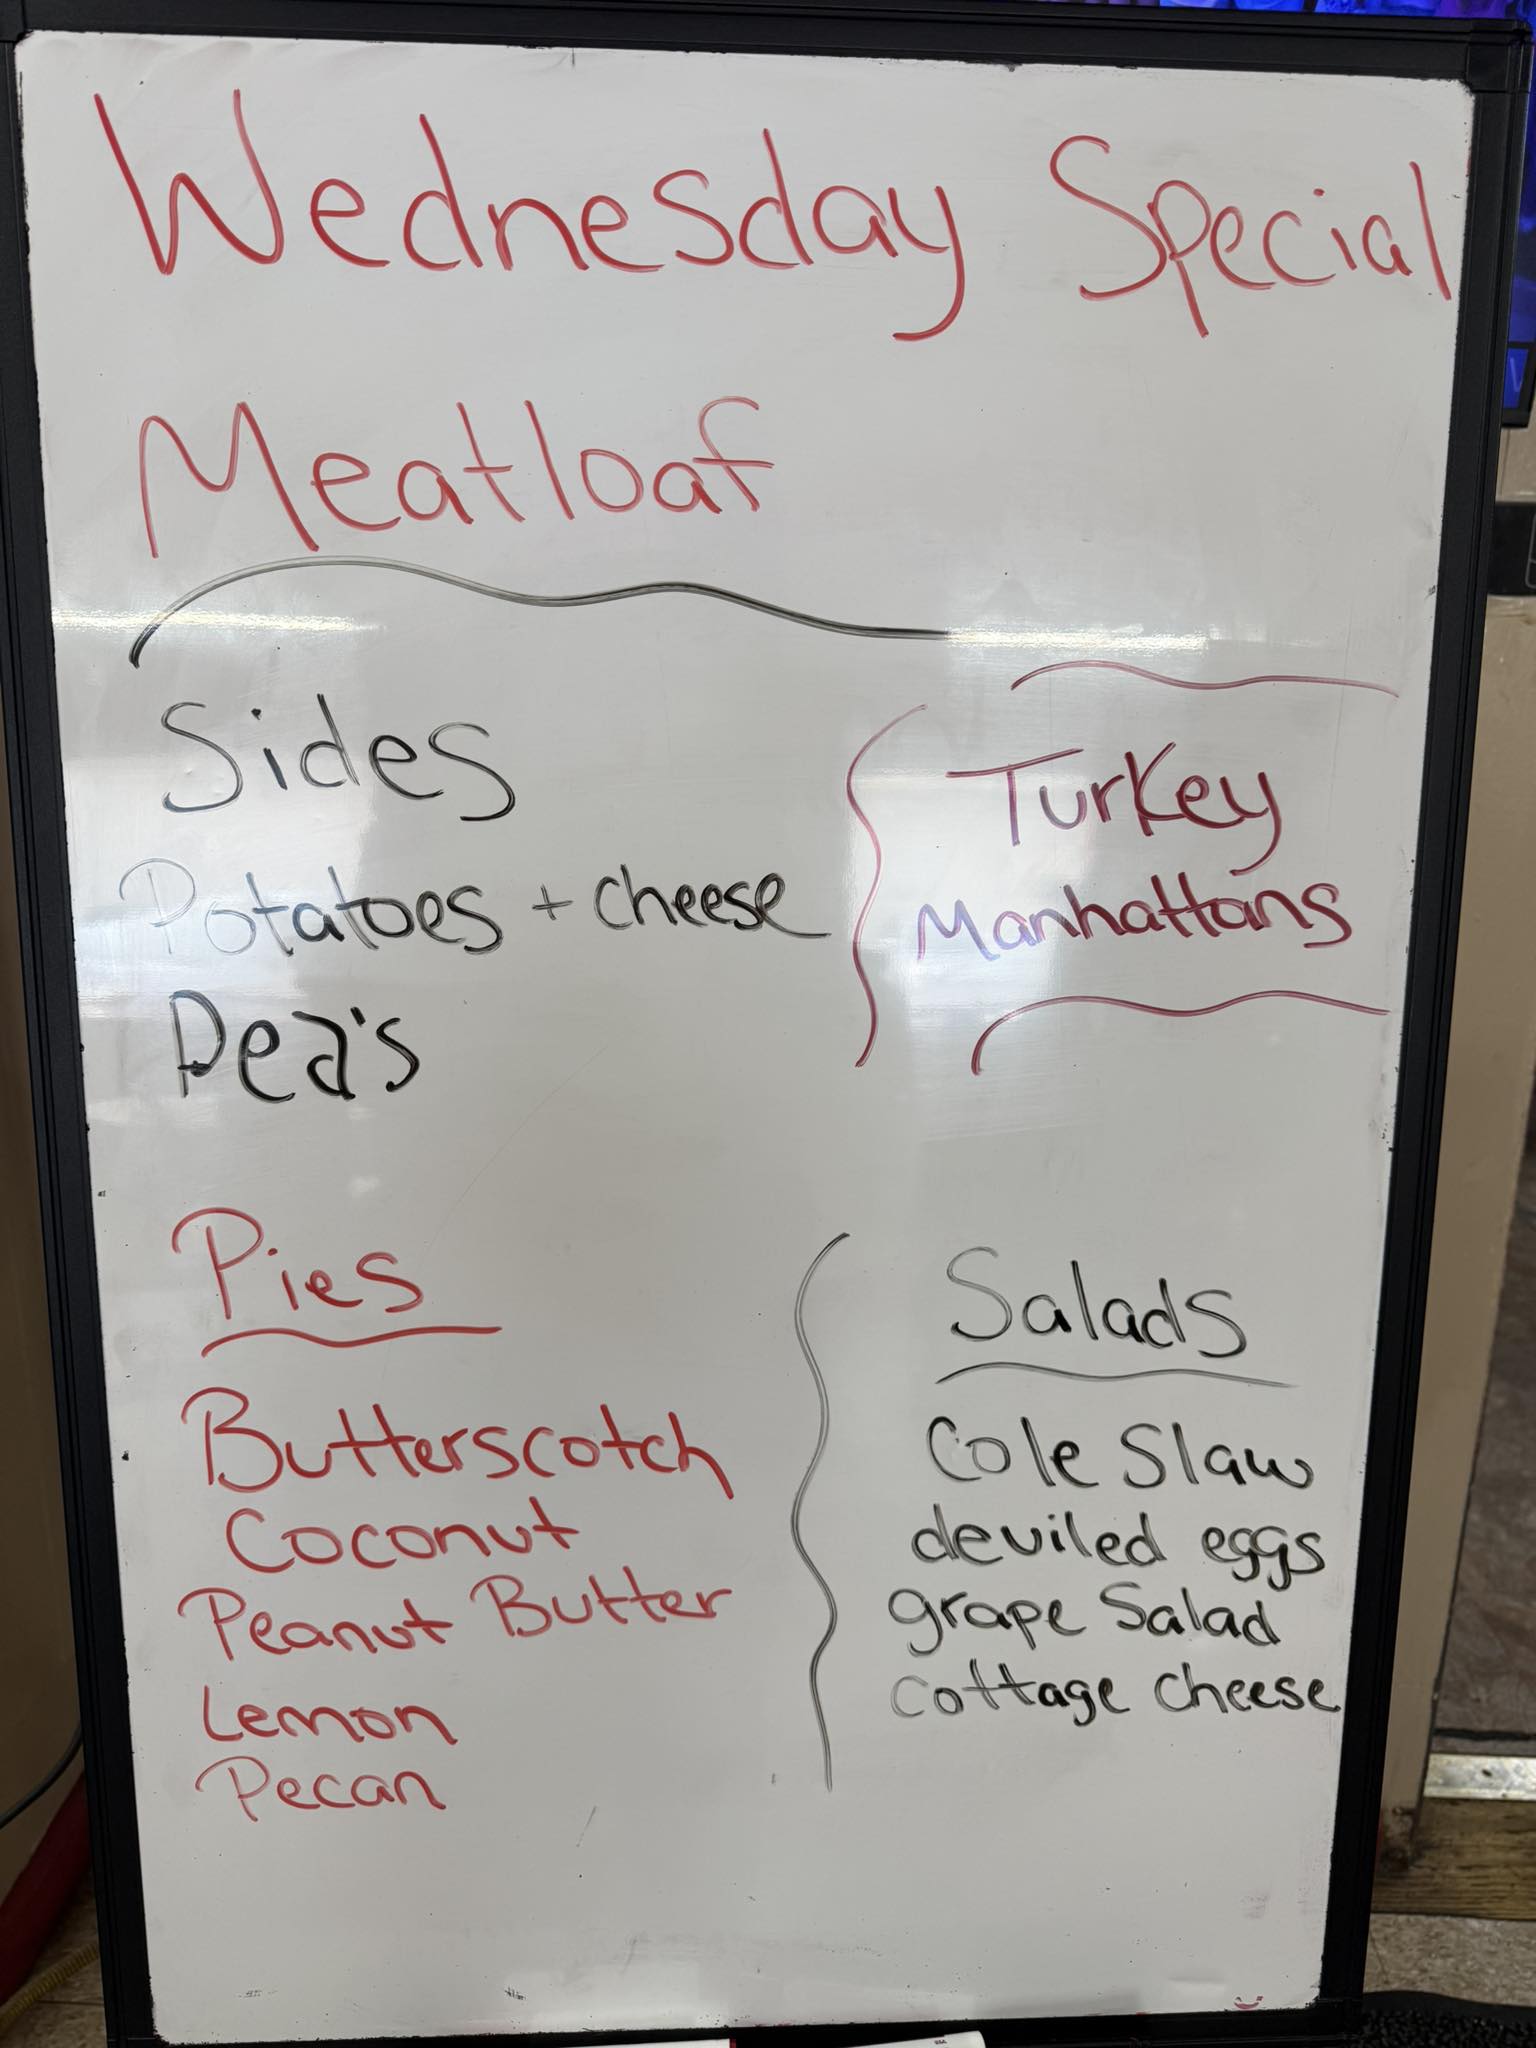 Wednesday Special
Meatloaf
Sides
Potatoes + cheese
Pea's
Turkey
Manhattans
Pies
Butterscotch
Coconut
Peanut Butter
Lemon
Pecan
Salads
Cole Slaw
deviled eggs
grape Salad
cottage cheese